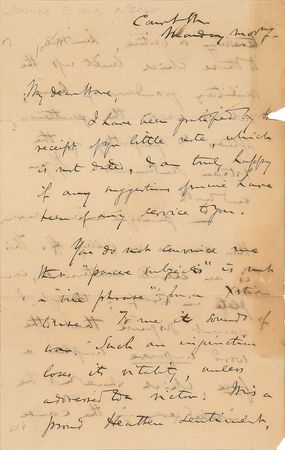 Court St
Monday morng.
My dear Hove,
I have been gratified by the
receipt of yr little note, which
is not dated, & am truly happy
if any suggestions of mine have
been of any service to you.
You do not convince me
that "parcere subjectis" is not
a "vile phrase" for a Xstian
To me it sounds of
war. Such an injunction
loses its vitality, unless
addressed to a victor. It is a
proud Heathen sentiment,